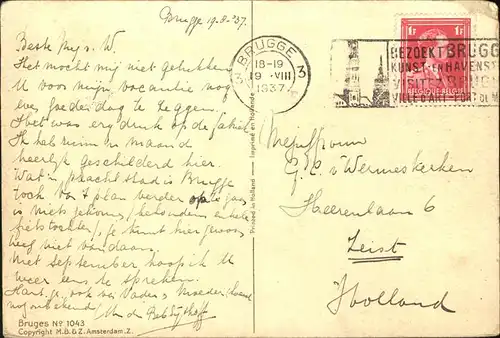 Brugge 19.8.'37.
Beste Mej. v. W.
Het mocht mij niet gelukken
U voor mijn vacantie nog
even goeden dag te zeggen.
Het was erg druk op de
Ik heb ruim een maand
heerlijk geschilderd hier.
Wat een pracht stad is Brugge
toch. Van 't plan verder op te gaan
is niets gekomen, behoudens enkele
fietstochten, je komt hier gewoon
weg niet vandaan.
Met September hoop ik U
weer eens te spreken.
Hart. gr. ook van Vader & Moeder,
nog onbekend, van de
Bruges No 1043
Copyright M.B.&Z. Amsterdam.Z.
Printed in Holland — Imprimé en Hollande
BRUGGE
3 3
18-19
19 -VIII
1937
BEZOEKT BRUGGE
KUNST EN HAVENST
VILLE D'ART - PORT DE M
1 FR 1 FR
BELGIQUE-BELGIË
Mejuffrouw
G. E. v Wermeskerken
Heerenlaan 6
Zeist
Holland